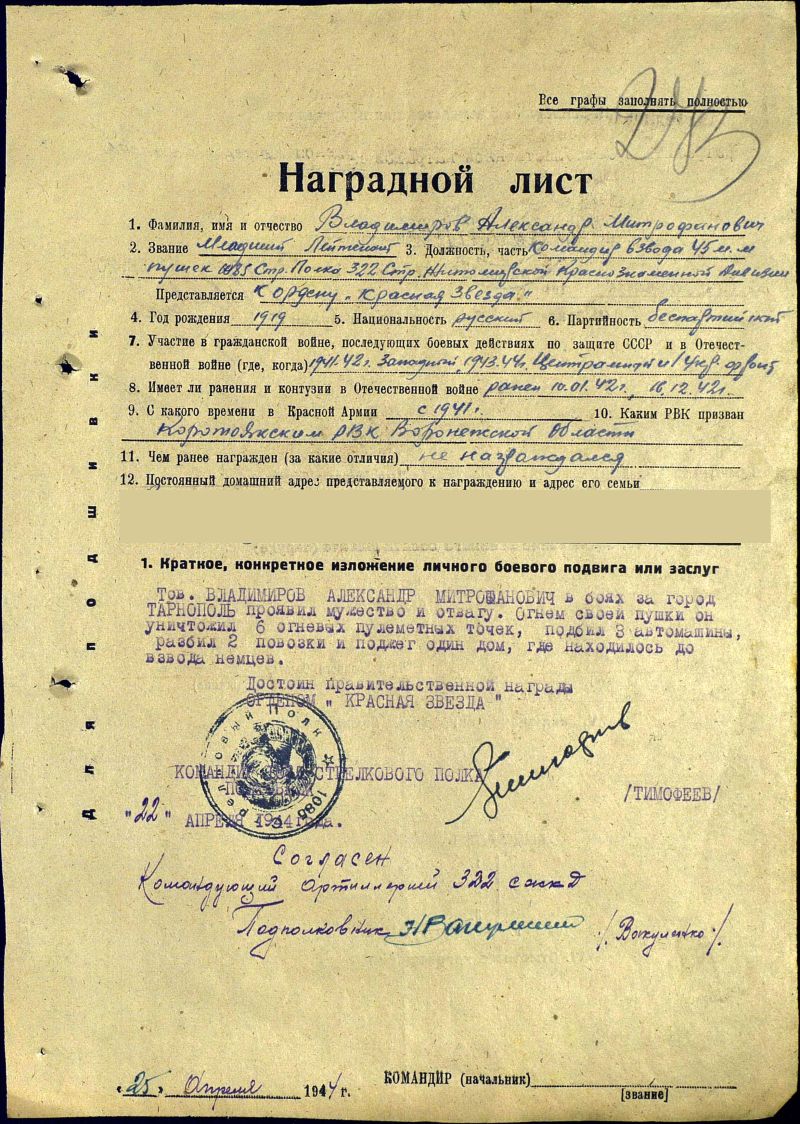 Все графы заполнять полностью
Наградной лист
1. Фамилия, имя и отчество Владимиров Александр Митрофанович
2. Звание Младший Лейтенант 3. Должность, часть Командир взвода 45 м.м
пушек 1085 Стр. Полка 322 Стр. Житомирской Краснознаменной Дивизии
Представляется К ордену „Красная Звезда."
4. Год рождения 1919 5. Национальность русский 6. Партийность беспартийный
7. Участие в гражданской войне, последующих боевых действиях по защите СССР и в Отечест-
венной войне (где, когда) 1941.42г. Западный, 1943.44г. Центральный и 1 Укр. фронт
8. Имеет ли ранения и контузии в Отечественной войне ранен 10.01.42г., 16.12.42г.
9. С какого времени в Красной Армии с 1941г. 10. Каким РВК призван
Коротоякским РВК Воронежской Области
11. Чем ранее награжден (за какие отличия) не награждался
12. Постоянный домашний адрес представляемого к награждению и адрес его семьи
1. Краткое, конкретное изложение личного боевого подвига или заслуг
Тов. ВЛАДИМИРОВ АЛЕКСАНДР МИТРОФАНОВИЧ в боях за город
ТАРНОПОЛЬ проявил мужество и отвагу. Огнем своей пушки он
уничтожил 6 огневых пулеметных точек, подбил 3 автомашины,
разбил 2 повозки и поджег один дом, где находилось до
взвода немцев.
Достоин правительственной награды
ОРДЕНОМ „ КРАСНАЯ ЗВЕЗДА "
КОМАНДИР СТРЕЛКОВОГО ПОЛКА
/ТИМОФЕЕВ/
"22" АПРЕЛЯ 1944 года.
Стрелковый Полк 1085
Согласен
Командующий Артиллерией 322
Подполковник /Вакуленко/
"25" Апреля 1944 г. КОМАНДИР (начальник)
[звание]
Для подшивки